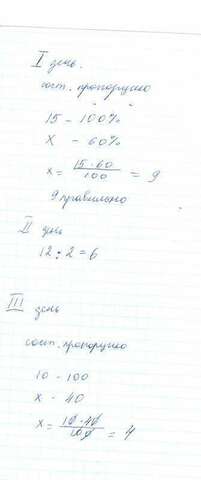 I день.
сост. пропорцию
15 - 100%
x - 60%
x = 15·60/100 = 9
9 правильно
II день
12 : 2 = 6
III день
сост. пропорцию
10 - 100
x - 40
x = 10·40/100 = 4